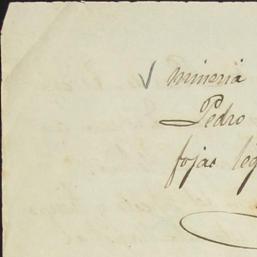 mineria
Pedro
fojas